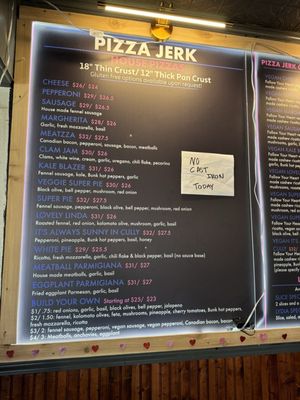 PIZZA JERK
HOUSE PIZZAS
18" Thin Crust/ 12" Thick Pan Crust
Gluten free options available upon request!
CHEESE $26/ $24
PEPPERONI $29/ $26.5
SAUSAGE $29/ $26.5
House made fennel sausage
MARGHERITA $28/ $26
Garlic, fresh mozzarella, basil
MEATZZA $32/ $27.5
Canadian bacon, pepperoni, sausage, bacon, meatballs
CLAM JAM $30/ $26
Clams, white wine, cream, garlic, oregano, chili flake, pecorino
KALE BLAZER $31/ $26
Fennel sausage, kale, Bunk hot peppers, garlic
VEGGIE SUPER PIE $30/ $26
Black olive, bell pepper, mushroom, red onion
SUPER PIE $32/ $27.5
Fennel sausage, pepperoni, black olive, bell pepper, mushroom, red onion
LOVELY LINDA $31/ $26
Roasted fennel, red onion, kalamata olive, mushroom, garlic, basil
IT'S ALWAYS SUNNY IN CULLY $32/ $27.5
Pepperoni, pineapple, Bunk hot peppers, basil, honey
WHITE PIE $29/ $25.5
Ricotta, fresh mozzarella, garlic, chili flake & black pepper, basil (no sauce base)
MEATBALL PARMIGIANA $31/ $27
House made meatballs, garlic, basil
EGGPLANT PARMIGIANA $31/ $27
Fried eggplant Parmesan, garlic, basil
BUILD YOUR OWN Starting at $25/ $23
$1/ .75: red onion, garlic, basil, black olives, bell pepper, jalapeno
$2/ 1.50: fennel, kalamata olives, feta, mushrooms, pineapple, cherry tomatoes, Bunk hot peppers,
fresh mozzarella, ricotta
$3/ 2: fennel sausage, pepperoni, vegan sausage, vegan pepperoni, Canadian bacon, bacon
$4/ 3: Meatballs, anchovies, eggplant
NO
CAST
IRON
TODAY
PIZZA JERK